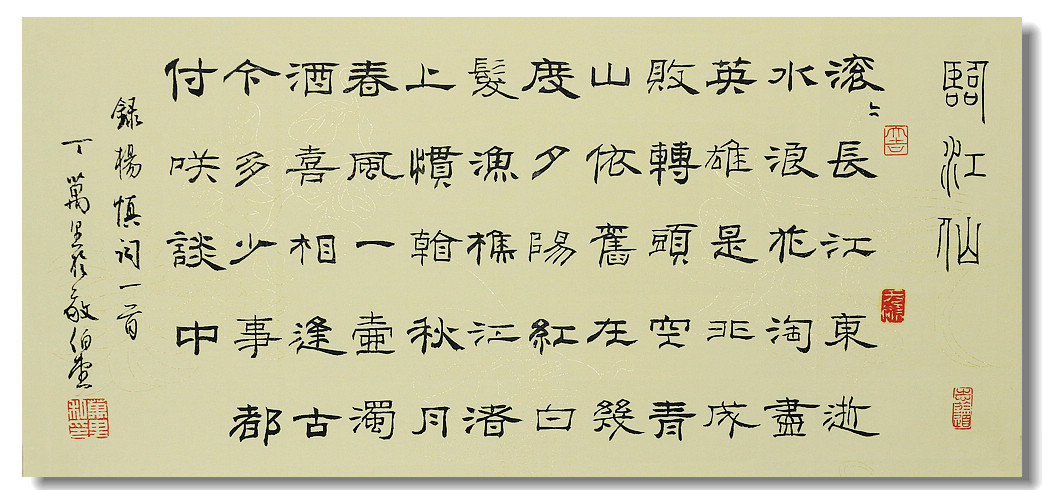 臨江仙
滚〻長江東逝
水浪花淘盡
英雄是非成
敗轉頭空青
山依舊在幾
度夕陽紅白
髮漁樵江渚
上慣看秋月
春風一壺濁
酒喜相逢古
今多少事都
付咲談中
録楊慎詞一首
丁萬里於敬伯堂